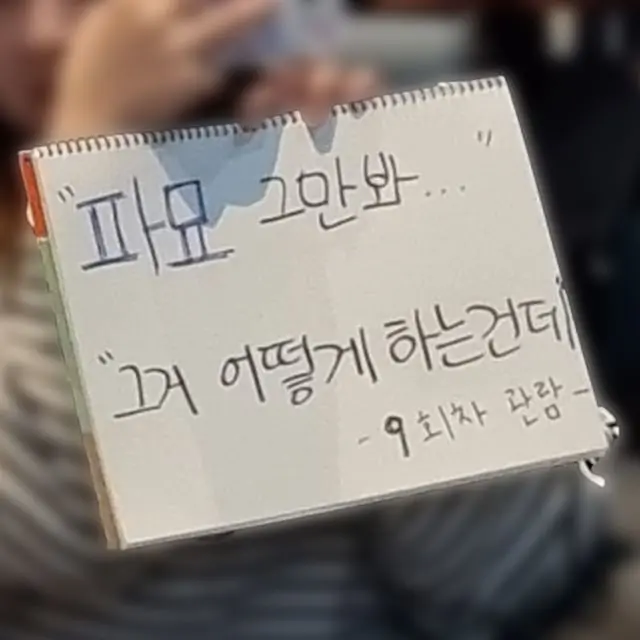 "파묘 그만 봐... "
"그거 어떻게 하는건데"
- 9회차 관람 -